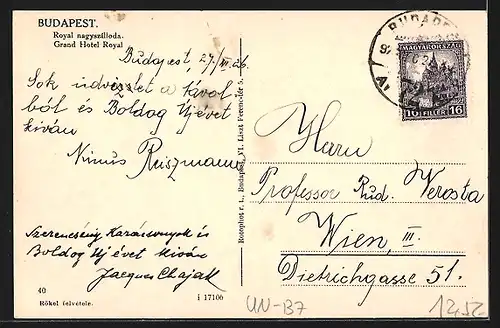 BUDAPEST.
Royal nagyszálloda.
Grand Hotel Royal
Budapest, 27/XII. 26
Sok üdvözlet a távol-
ból és Boldog Újévet
kiván
Reiszmann
Szerencsés Karácsonyok és
Boldog Új évet kiván
Jacques Chajak
40
Rökel felvétele.
i 17106
Rotophot r. t., Budapest, VI. Liszt Ferenc-tér 5.
BUDAPE
MAGYARORSZÁG
16 FILLER 16
Herrn
Professor Rud. Verosta
Wien, III.
Dietrichgasse 51.
UN-B7